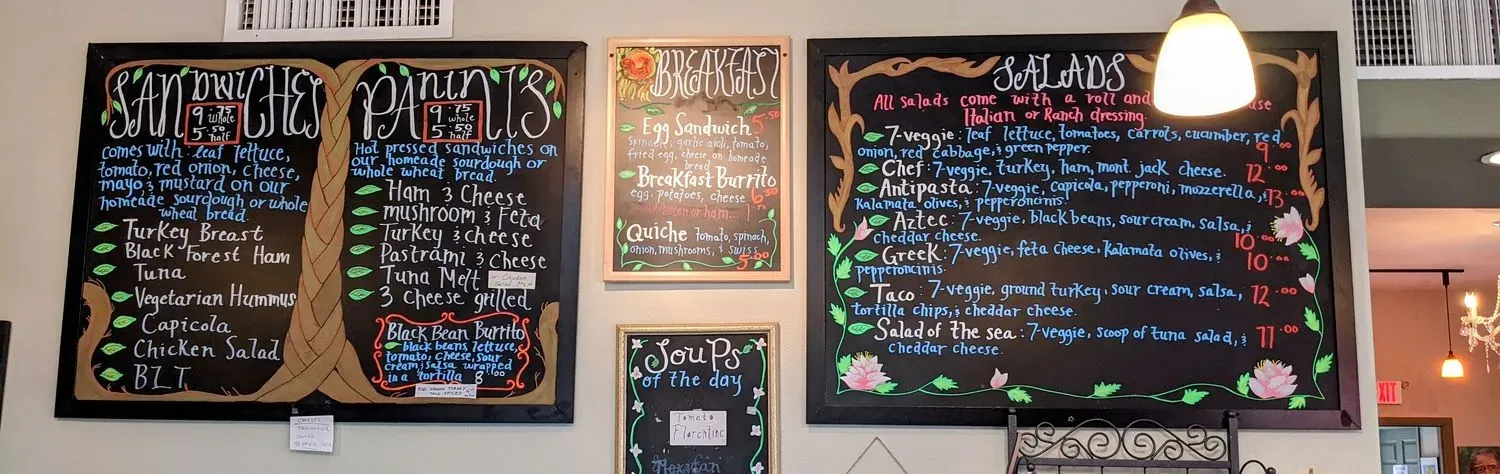 SANDWICHES
9.75
whole
5.50
half
comes with leaf lettuce,
tomato, red onion, cheese,
mayo & mustard on our
homeade sourdough or whole
wheat bread.
Turkey Breast
Black Forest Ham
Tuna
Vegetarian Hummus
Capicola
Chicken Salad
BLT
PANINI'S
9.75
whole
5.50
half
Hot pressed sandwiches on
our homeade sourdough or
whole wheat bread.
Ham & Cheese
mushroom & Feta
Turkey & cheese
Pastrami & Cheese
Tuna Melt
or Chicken
Salad Melt
3 Cheese grilled
Black Bean Burrito
black beans, lettuce,
tomato, cheese, sour
cream, & salsa wrapped
in a tortilla 8.00
ADD GROUND TURKEY
CHEESES
PROVOLONE
SWISS
PEPPER
BREAKFAST
Egg Sandwich 5.50
Spinach, garlic aioli, tomato,
fried egg, cheese on homeade
bread
Breakfast Burrito
egg, potatoes, cheese 6.50
bacon or ham... 1.50
Quiche tomato, spinach,
onion, mushrooms, & swiss
5.00
SOUPS
of the day
Tomato
Florentine
Mexican
SALADS
All salads come with a roll and use
Italian or Ranch dressing.
7-veggie: leaf lettuce, tomatoes, carrots, cucumber, red
onion, red cabbage, & green pepper. 9.00
Chef: 7-veggie, turkey, ham, mont. jack cheese. 12.00
Antipasta: 7-veggie, capicola, pepperoni, mozzerella, & 13.00
Kalamata olives, & pepperoncinis.
Aztec: 7-veggie, black beans, sour cream, salsa, &
cheddar cheese. 10.00
Greek: 7-veggie, feta cheese, Kalamata olives, & 10.00
pepperoncinis.
Taco: 7-veggie, ground turkey, sour cream, salsa, 12.00
tortilla chips, & cheddar cheese.
Salad of the sea: 7-veggie, scoop of tuna salad, & 11.00
cheddar cheese.
EXIT